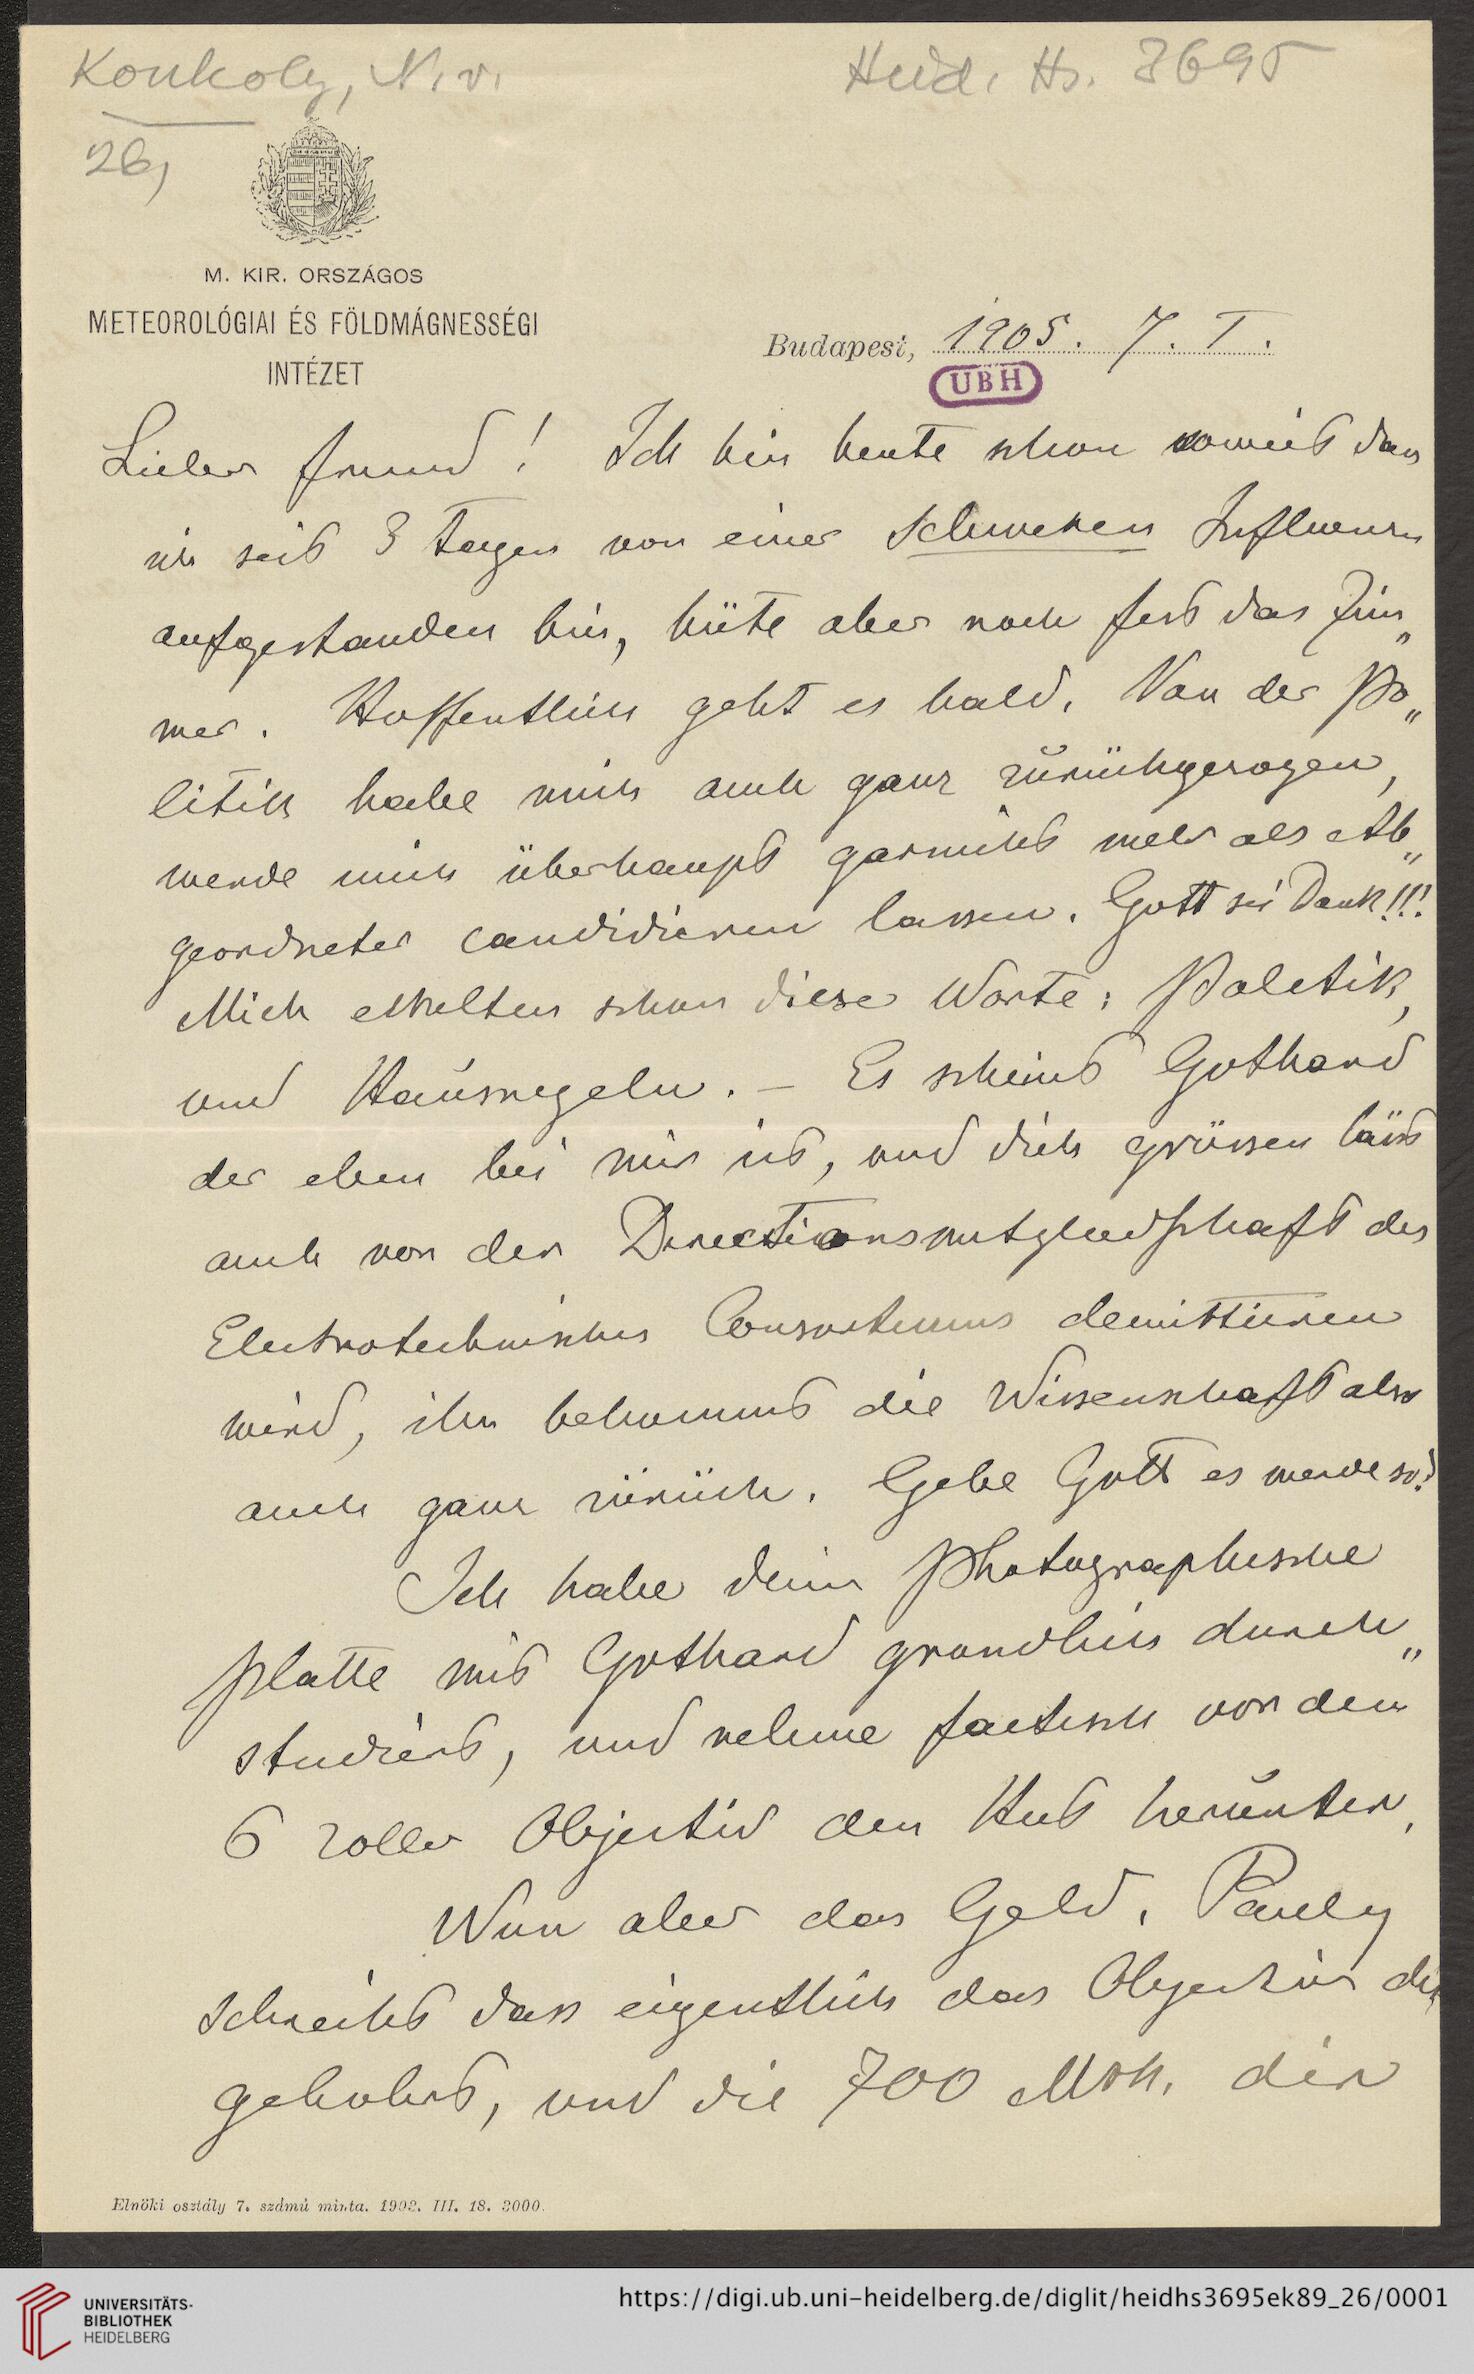 Konkoly, N. v.
Heid. Hs. 3695
26,
M. KIR. ORSZÁGOS
METEOROLÓGIAI ÉS FÖLDMÁGNESSÉGI
INTÉZET
Budapest, 1905. 7. I.
UBH
Lieber Freund! Ich bin heute schon soweit dass
ich seit 3 Tagen von einer schweren Influenza
aufgestanden bin, hüte aber noch fest das Zim„
mer. Hoffentlich geht es bald. Von der Po„
litik habe mich auch ganz zurückgezogen,
werde mich überhaupt garnicht mehr als Ab„
geordneter candidieren lassen. Gott sei Dank!!!
Mich ekelten schon diese Worte: Politik,
und . – Es scheint Gothard
der eben bei mir ist, und dich grüssen lässt
auch von der Directionsmitgliedschaft des
Electrotechnischen Consortiums demittieren
wird, ihn bekommt die Wissenschaft also
auch ganz zurück. Gebe Gott es werde so!
Ich habe deine Photographische
Platte mit Gothard grundlich durch„
studiert, und nehme factisch vor dem
6 zoller Objectiv den Hut herunter.
Nun aber das Geld. Pauly
schreibt dass eigentlich das Objectiv dir
gehohrt, und die 700 Mrk. dir
Elnöki osztály 7. számú minta. 1902. III. 18. 3000.
UNIVERSITÄTS-
BIBLIOTHEK
HEIDELBERG
https://digi.ub.uni-heidelberg.de/diglit/heidhs3695ek89_26/0001